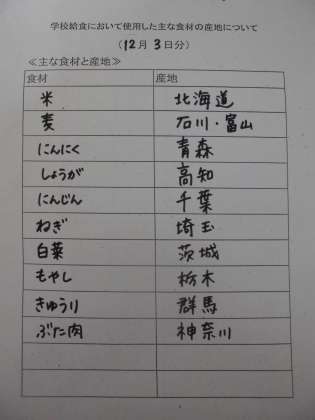 学校給食において使用した主な食材の産地について
(12月 3日分)
≪主な食材と産地≫
食材 産地
米 北海道
麦 石川・富山
にんにく 青森
しょうが 高知
にんじん 千葉
ねぎ 埼玉
白菜 茨城
もやし 栃木
きゅうり 群馬
ぶた肉 神奈川